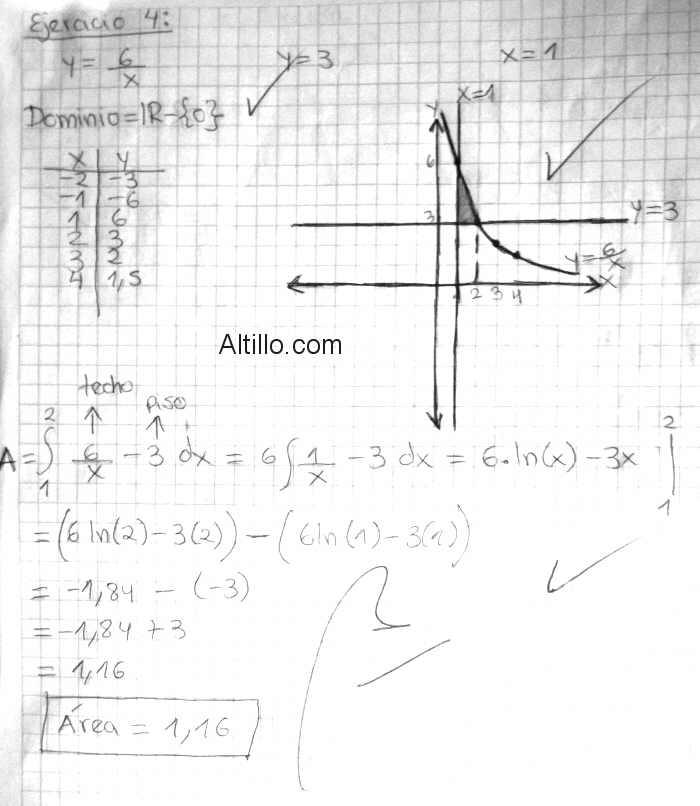 Ejercicio 4:
y = 6/x y=3 x=1
Dominio=IR-{0}
x y
-2 -3
-1 -6
1 6
2 3
3 2
4 1,5
x=1
y
6
3 y=3
y=6/x
x
2 3 4
Altillo.com
techo
piso
A = ∫₁² 6/x - 3 dx = 6∫ 1/x - 3 dx = 6.ln(x) - 3x |₁²
= (6 ln(2) - 3(2)) - (6 ln(1) - 3(1))
= -1,84 - (-3)
= -1,84 + 3
= 1,16
Área = 1,16